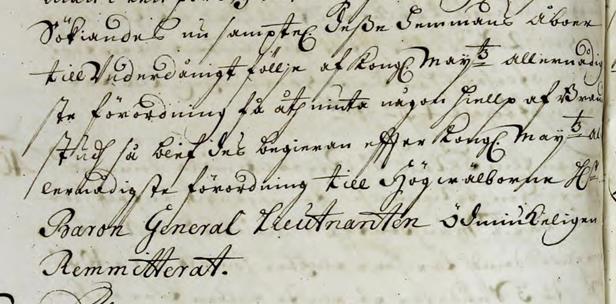 Sökiandes nu sampteл. deße hemmans åboer
till Underdånigt föllje af Kongl. Mayttz allernådig
ste förordning få åthniuta någon hielp af Bran
stud så blef des begieran effter Kongl. Mayttz al
lernådigste förordning till Högwälborne H:r
Baron General Lieutnanten ödmiukeligen
Remmitterat.